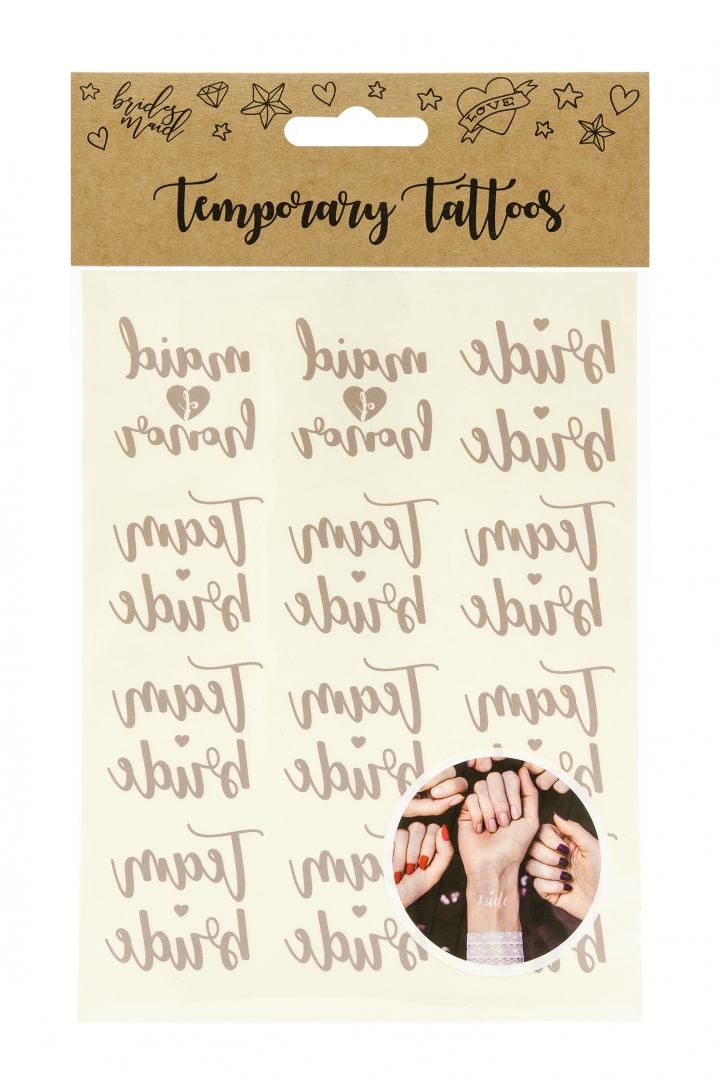 brides
maid
LOVE
temporary tattoos
maid maid bride
of of
honor honor bride
Team Team Team
bride bride bride
Team Team Team
bride bride bride
Team Team
bride bride
bride